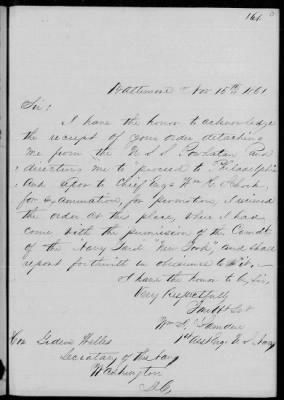 161
Baltimore Nov 15th 1861
Sir:
I have the honor to acknowledge
the receipt of your order detaching
me from the U S S Powhatan and
directing me to proceed to Philadelphia
and report to Chief Engr Wm E.
for examination, for promotion, I received
the order, at this place, where I had
come with the permission of the Comdt
of the Navy Yard New York and shall
report forthwith in obedience to it,
I have the honor to be, Sir,
Very Respectfully
Your Obt Svt
Wm S.
1st Asst Eng. U S Navy
Hon Gideon Welles
Secretary of the Navy
Washington
D.C.